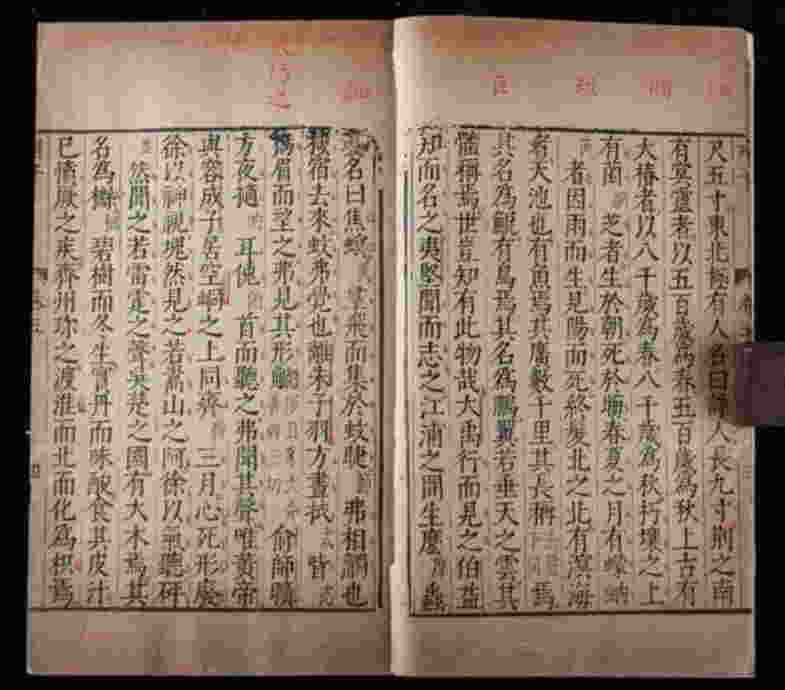 尺五寸東北極有人名曰諍人長九寸荆之南
有冥靈者以五百歲為春五百歲為秋上古有
大椿者以八千歲為春八千歲為秋朽壤之上
有菌芝者生於朝死於晦春夏之月有蠓蚋
者因雨而生見陽而死終髮北之北有溟海
者天池也有魚焉其廣數千里其長稱焉
其名為鯤有鳥焉其名為鵬翼若垂天之雲其
體稱焉世豈知有此物哉大禹行而見之伯益
知而名之夷堅聞而志之江浦之間生麼蟲
其名曰焦螟羣飛而集於蚊睫弗相觸也
棲宿去來蚊弗覺也離朱子羽方晝拭眥
揚眉而望之弗見其形䚦俞師曠
方夜擿耳俛首而聽之弗聞其聲唯黃帝
與容成子居空峒之上同齋三月心死形廢
徐以神視塊然見之若嵩山之阿徐以氣聽砰
然聞之若雷霆之聲吳楚之國有大木焉其
名為櫾碧樹而冬生實丹而味酸食其皮汁
已憤厥之疾齊州珍之渡淮而北而化為枳焉